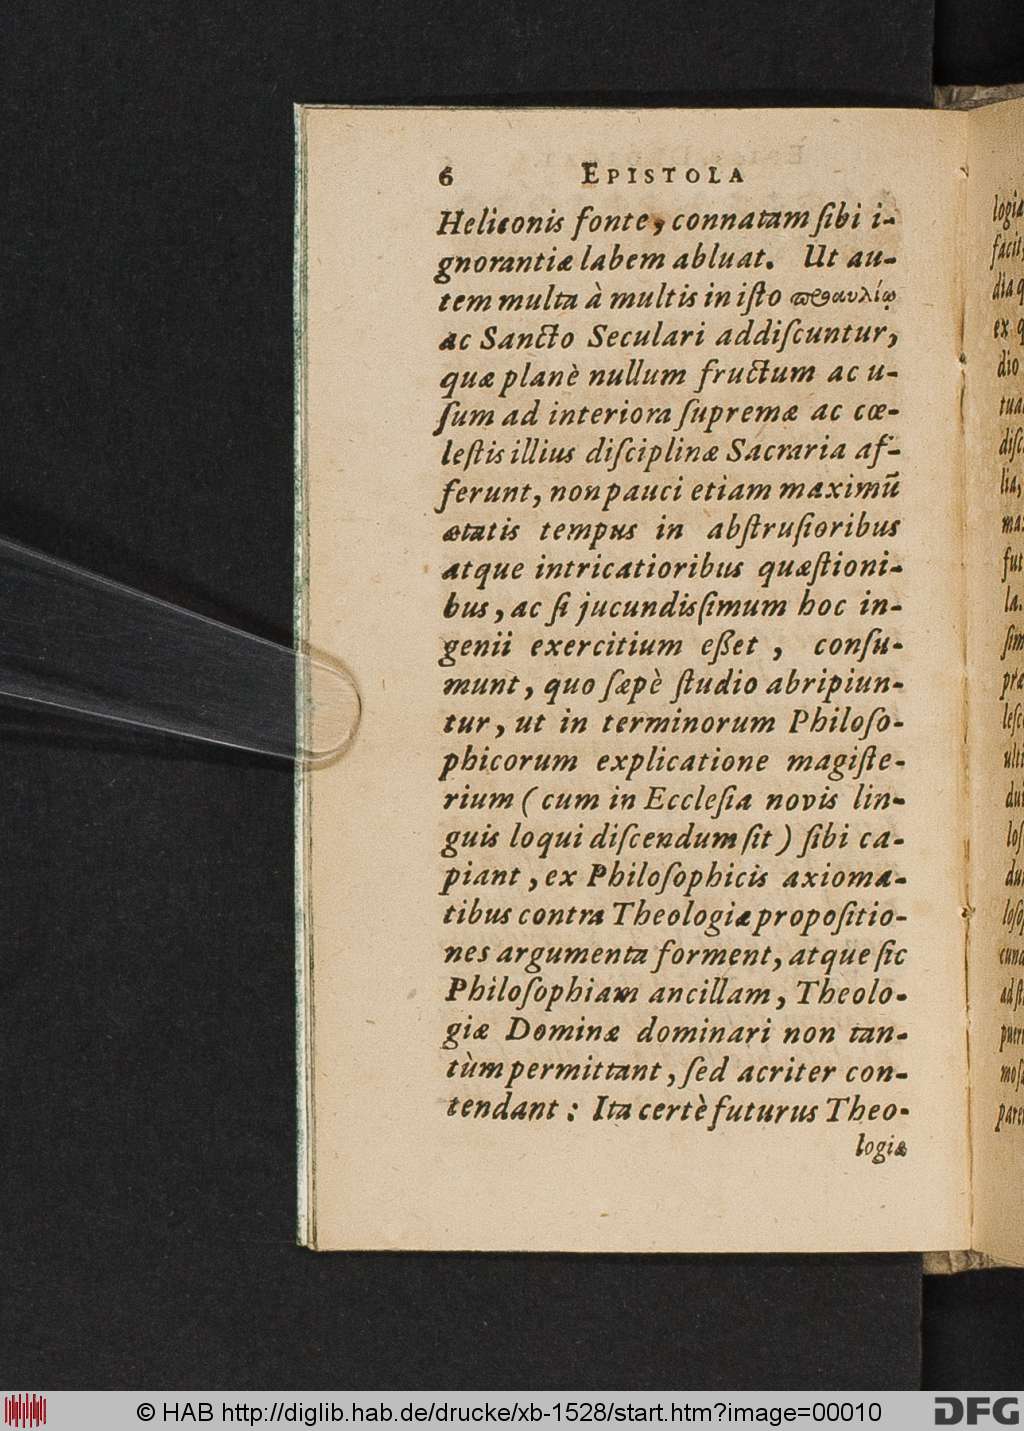 6 EPISTOLA
Heliconis fonte, connatam ſibi i-
gnorantiæ labem abluat. Ut au-
tem multa à multis in iſto προαυλίῳ
ac Sancto Seculari addiſcuntur,
quæ planè nullum fructum ac u-
ſum ad interiora ſupremæ ac cœ-
leſtis illius diſciplinæ Sacraria af-
ferunt, non pauci etiam maximū
ætatis tempus in abſtruſioribus
atque intricatioribus quæſtioni-
bus, ac ſi jucundisſimum hoc in-
genii exercitium eßet, conſu-
munt, quo ſæpè ſtudio abripiun-
tur, ut in terminorum Philoſo-
phicorum explicatione magiſte-
rium (cum in Eccleſia novis lin-
guis loqui diſcendum ſit) ſibi ca-
piant, ex Philoſophicis axioma-
tibus contra Theologiæ propoſitio-
nes argumenta forment, atque ſic
Philoſophiam ancillam, Theolo-
giæ Dominæ dominari non tan-
tùm permittant, ſed acriter con-
tendant: Ita certè futurus Theo-
logiæ
© HAB http://diglib.hab.de/drucke/xb-1528/start.htm?image=00010
DFG